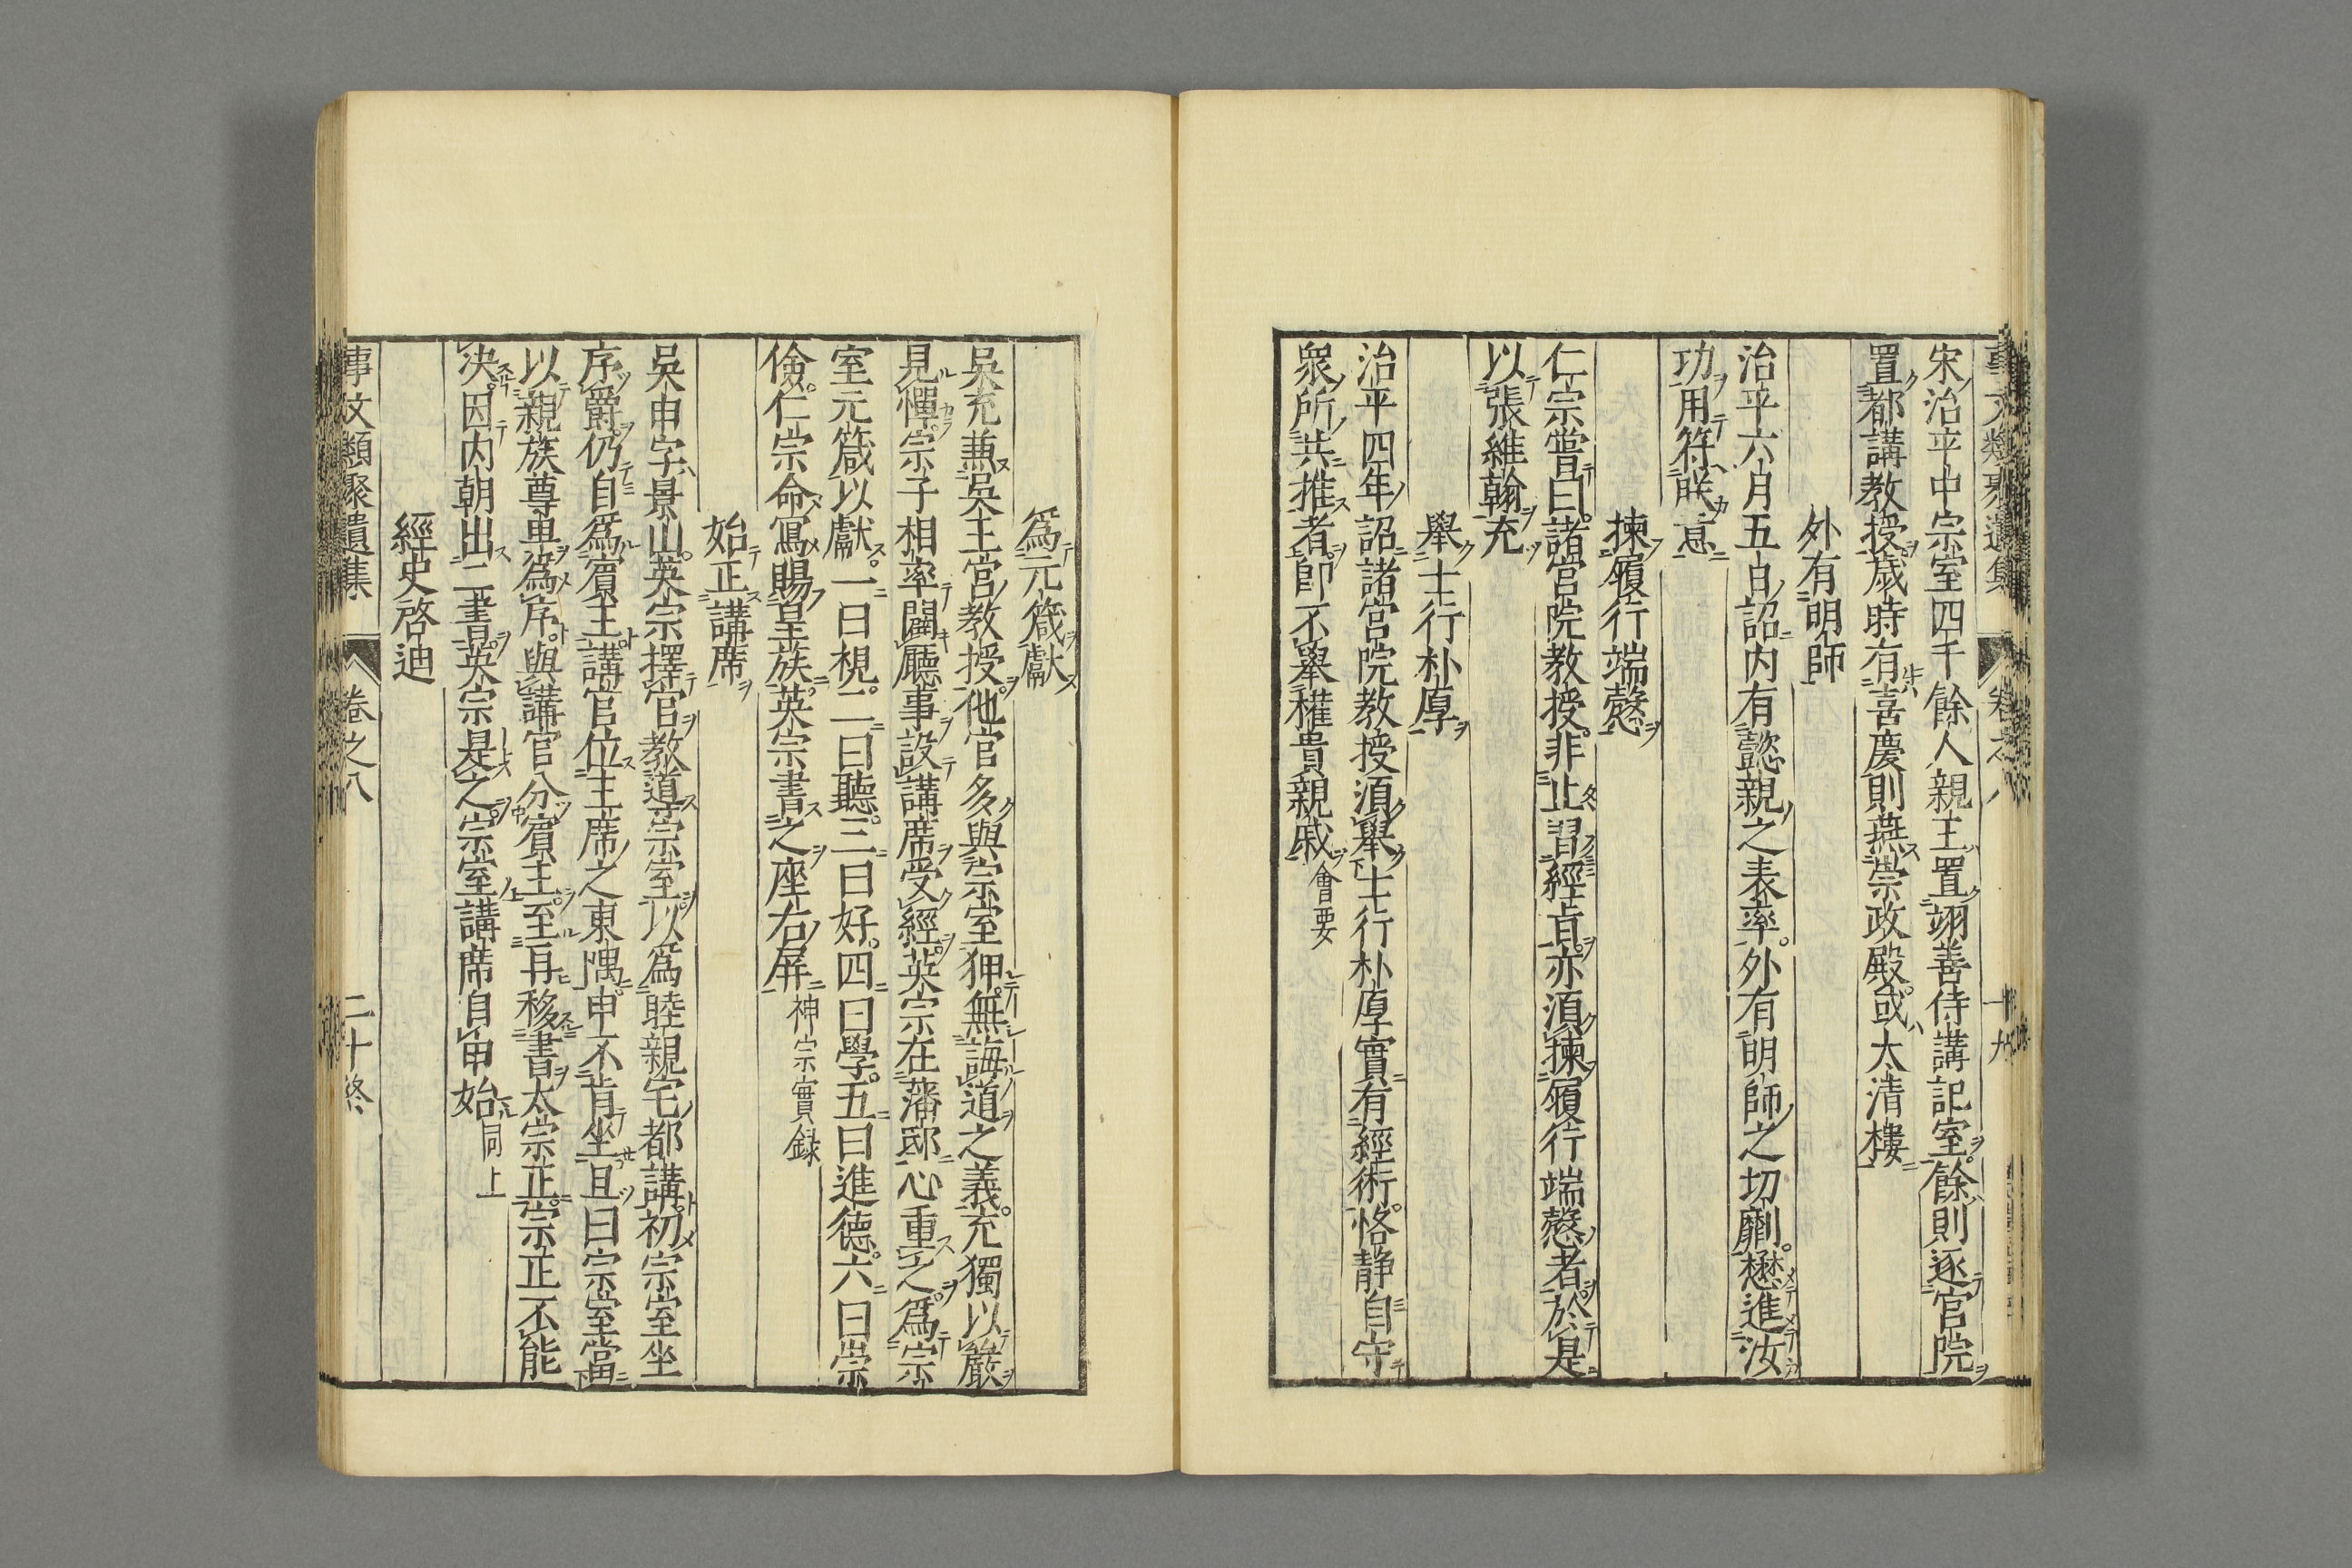 事文類聚遺集 卷之八 十九
宋治平中宗室四千餘人親王置翊善侍講記室餘則逐官院
置都講教授歲時有喜慶則燕崇政殿或太清樓
外有明師
治平六月五日詔内有懿親之表率。外有明師之切劘。懋進汝
功用符朕意
揀履行端慤
仁宗嘗曰。諸宮院教授。非止習經㫖。亦須揀履行端慤者。於是
以張維翰充
舉士行朴厚
治平四年詔諸宮院教授須舉士行朴厚實有經術。恪静自守
衆所共推者。即不舉權貴親戚會要
爲元箴獻
吳充兼吳王宮教授。他官多與宗室狎。無誨道之義。充獨以嚴
見憚。宗子相率闢廳事設講席受經。英宗在藩邸心重之。爲宗
室元箴以獻。一曰視。二曰聽。三曰好。四曰學。五曰進德。六曰崇
儉。仁宗命寫賜皇族。英宗書之座右屏神宗實録
始正講席
吳申字景山。英宗擇官教道宗室。以爲睦親宅都講。初宗室坐
序爵。仍自爲賔主。講官位主席之東隅。申不肯坐且曰宗室當
以親族尊卑爲序。與講官分賔主。至再移書太宗正。宗正不能
决。因内朝出二書。英宗是之。宗室講席自申始同上
經史啓迪
事文類聚遺集 卷之八 二十終